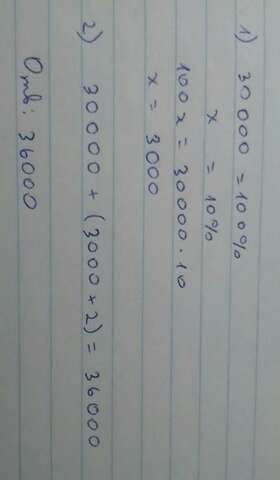 1) 30000 = 100%
x = 10%
100x = 30000 · 10
x = 3000
2) 30000 + (3000 * 2) = 36000
Отв: 36000